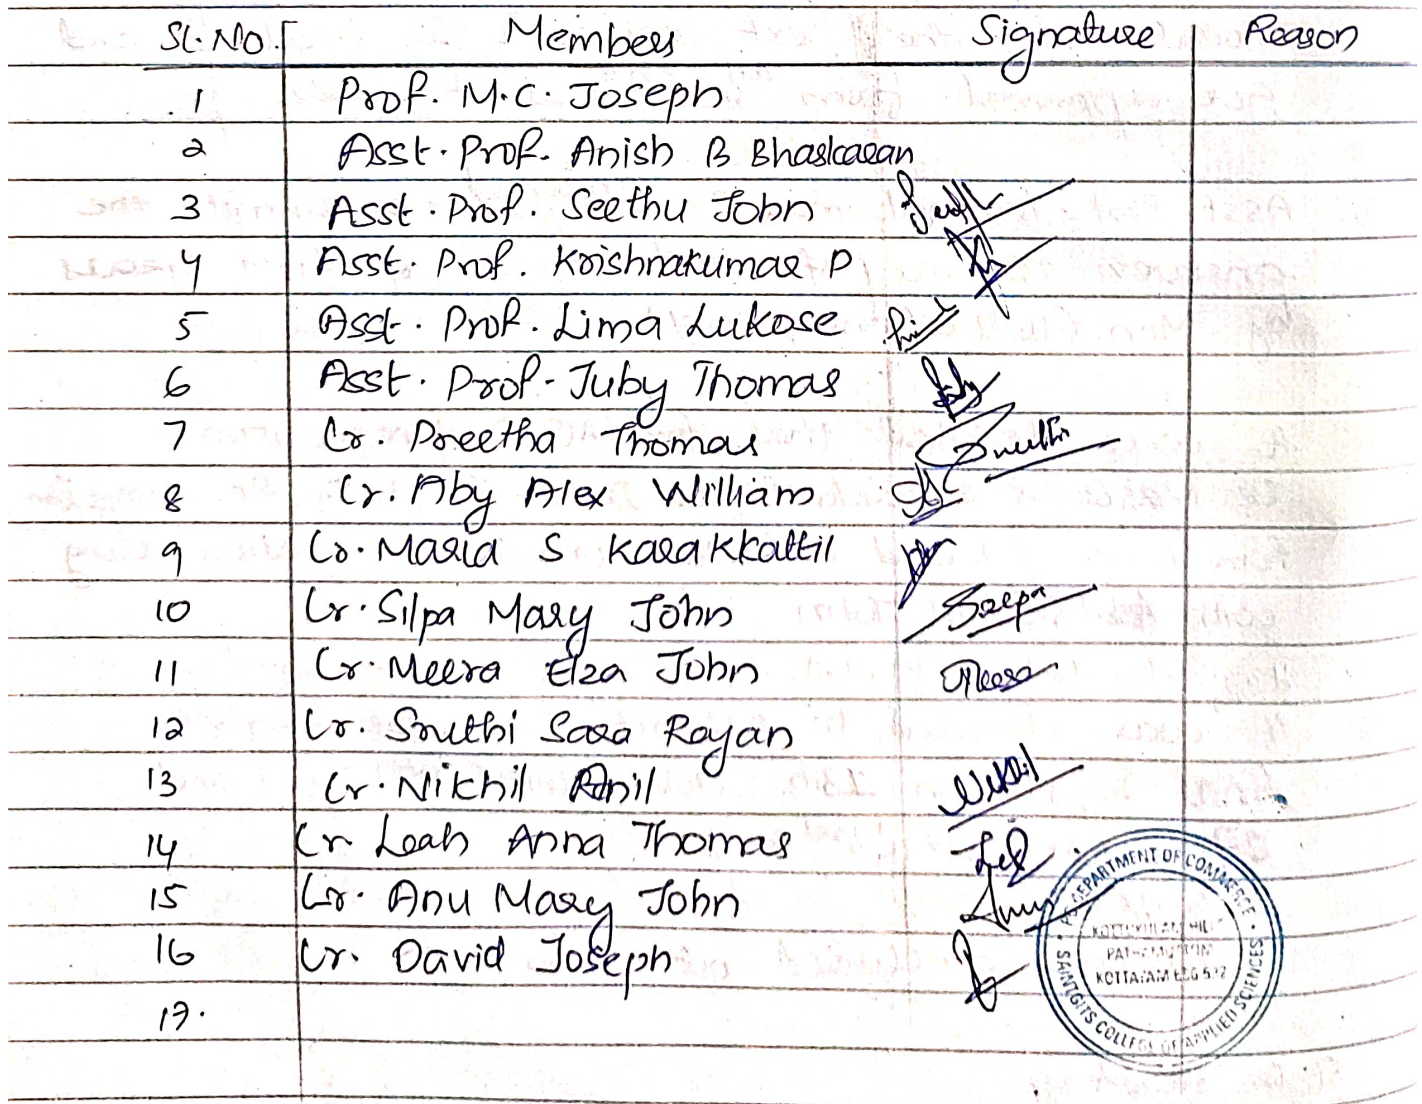 Sl.No. Members Signature Reason
1 Prof. M.C. Joseph
2 Asst. Prof. Anish B Bhaskaran
3 Asst. Prof. Seethu John
4 Asst. Prof. Krishnakumar P
5 Asst. Prof. Lima Lukose
6 Asst. Prof. Juby Thomas
7 Cr. Preetha Thomas Preetha
8 Cr. Aby Alex William
9 Cr. Maria S Karakkattil
10 Cr. Silpa Mary John
11 Cr. Meera Elza John Meera
12 Cr. Sruthi Sara Rajan
13 Cr. Nikhil Anil Nikhil
14 Cr. Leah Anna Thomas
15 Cr. Anu Mary John Anu
16 Cr. David Joseph
17.
DEPARTMENT OF COMMERCE
SAINTGITS COLLEGE OF APPLIED SCIENCES